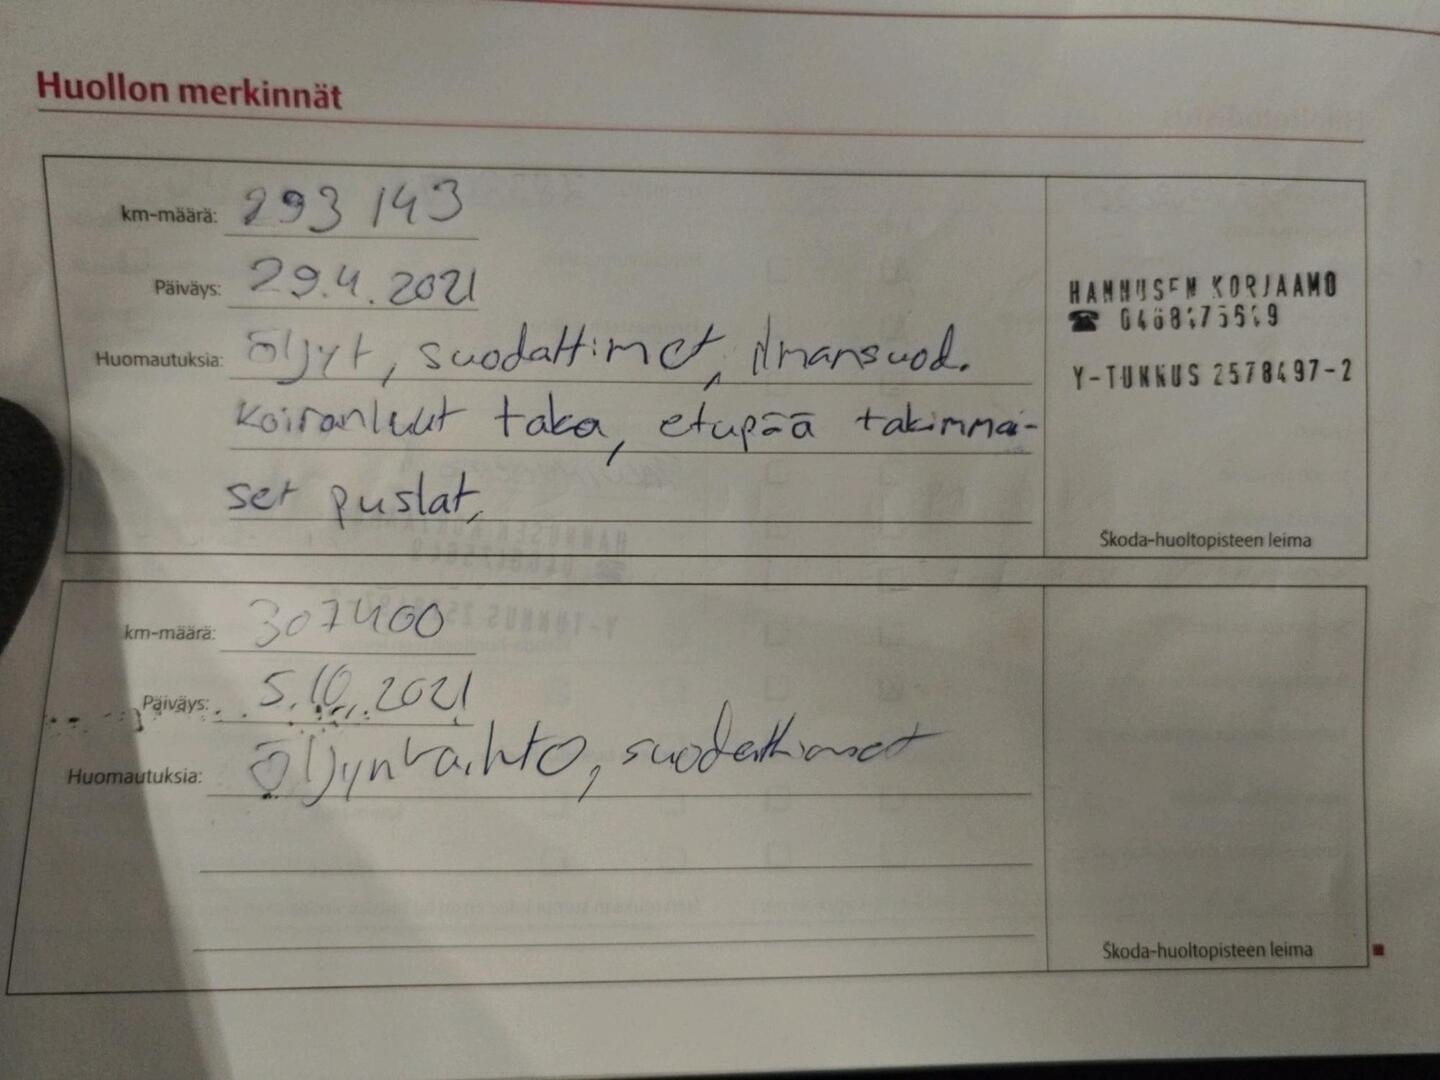 Huollon merkinnät
km-määrä: 293 143
Päiväys: 29.4.2021
Huomautuksia: Öljyt, suodattimet, ilmansuod.
koiranluut taka, etupää takimmai-
set puslat,
HANNUSEN KORJAAMO
Y-TUNNUS 2578497-2
Škoda-huoltopisteen leima
km-määrä: 307400
Päiväys: 5.10.2021
Huomautuksia: Öljynvaihto, suodattimet
Škoda-huoltopisteen leima